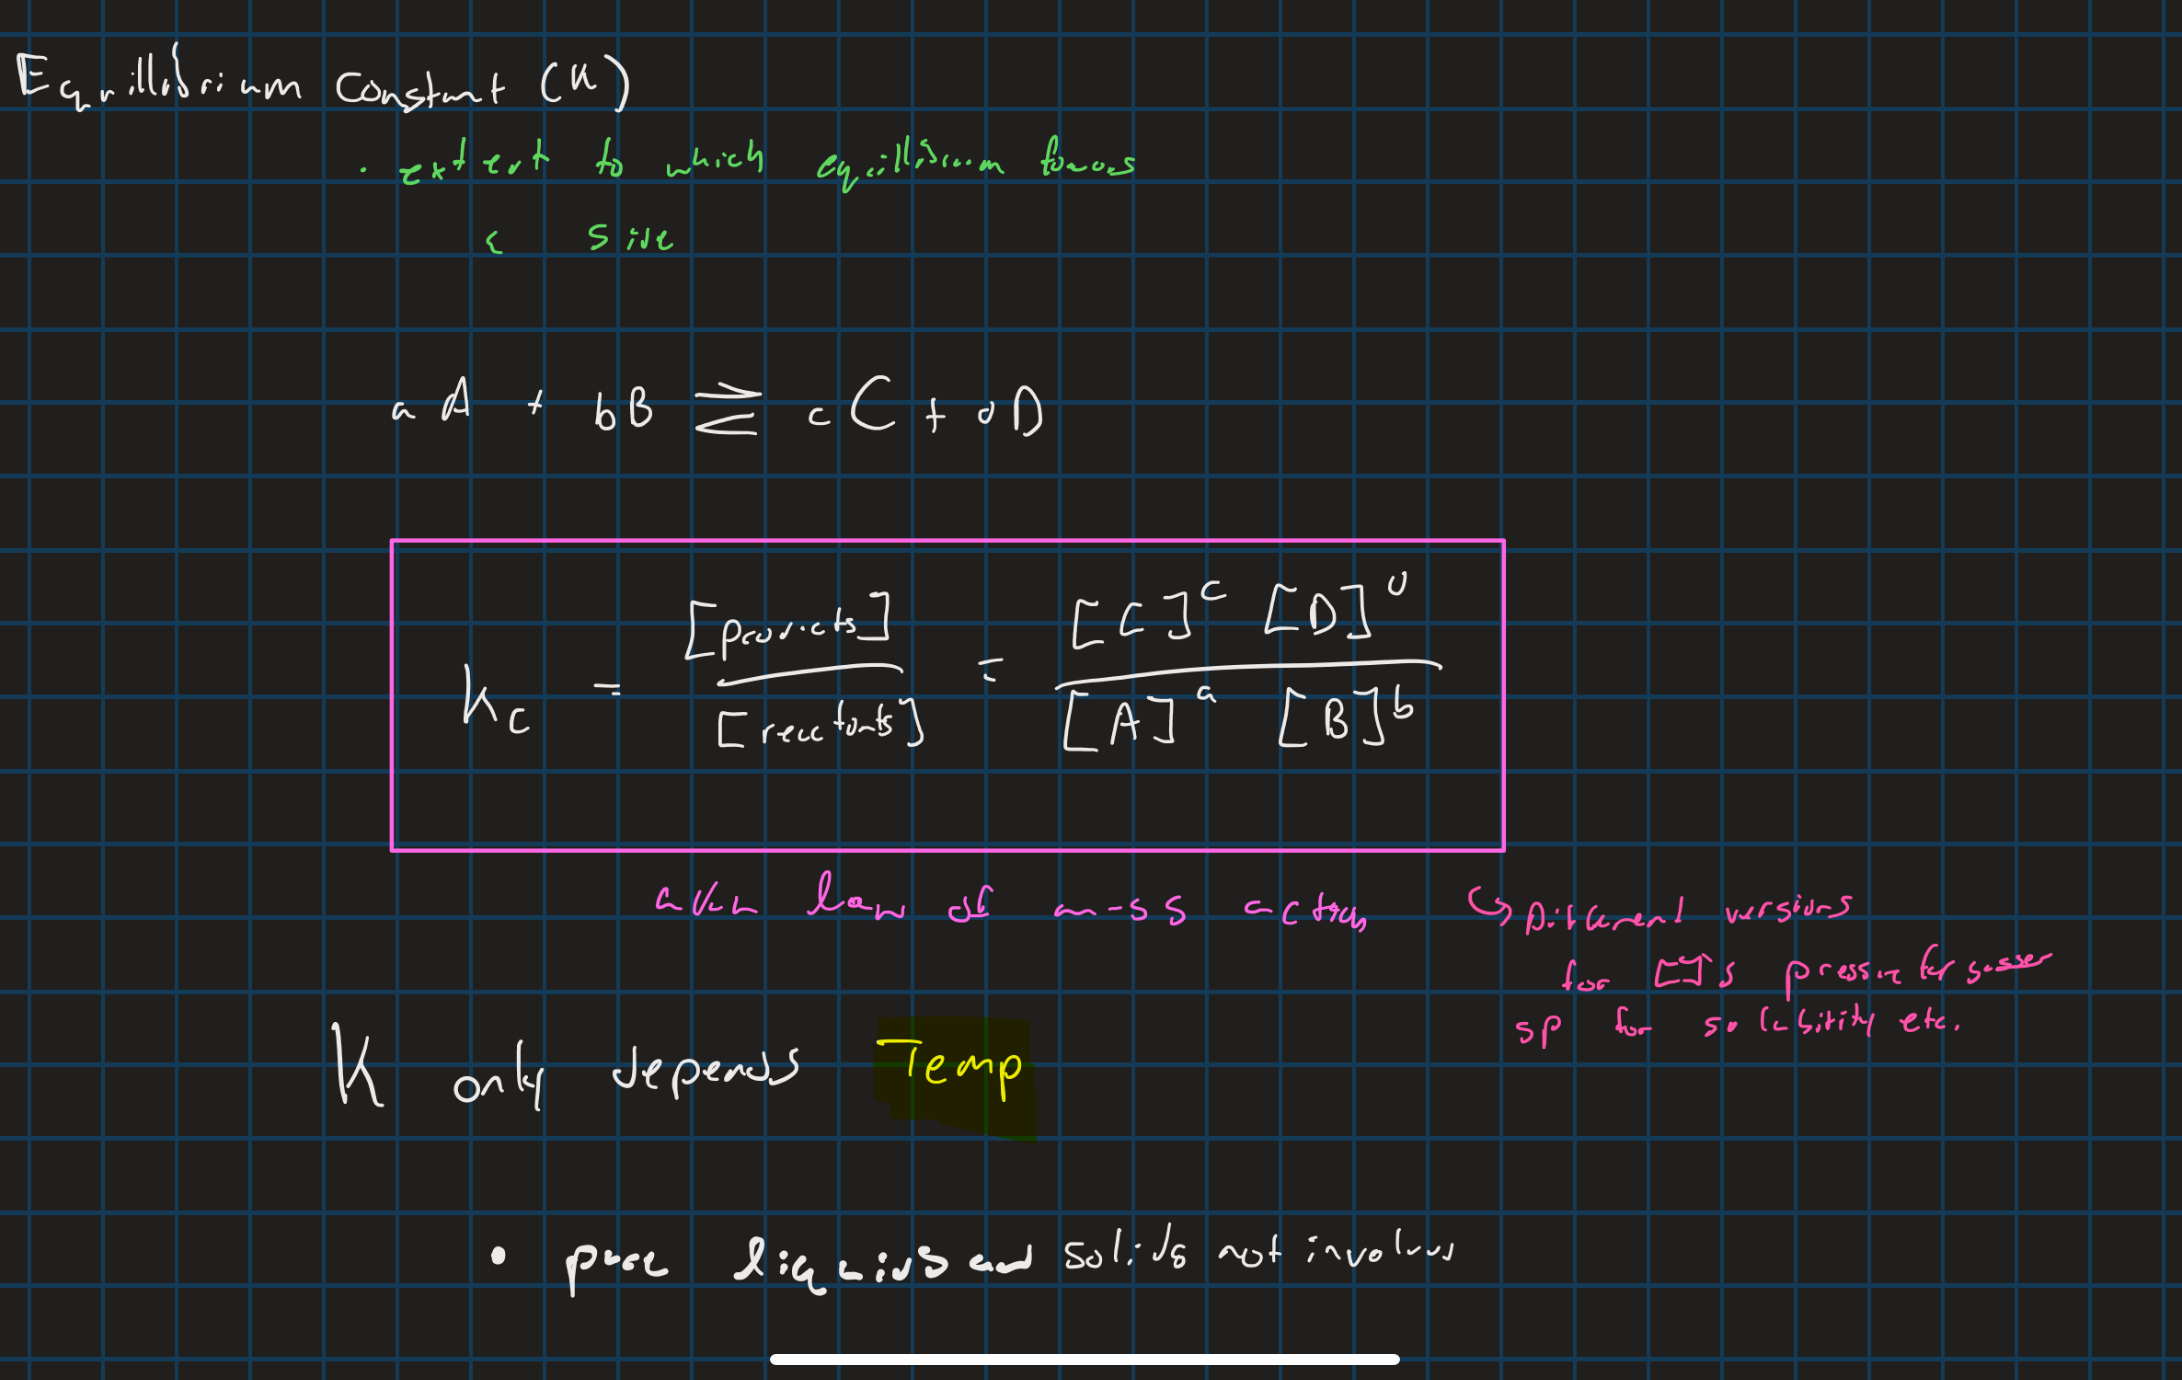 Equillibrium Constant (K)
· extent to which equillibrium favors
a side
aA + bB ⇌ cC + dD
Kc = [products] / [reactants] = [C]^c [D]^d / [A]^a [B]^b
aka law of mass action
↪ Different versions
for [ ]'s pressure for gasses
sp for solubility etc.
K only depends Temp
• pure liquids and solids not involved